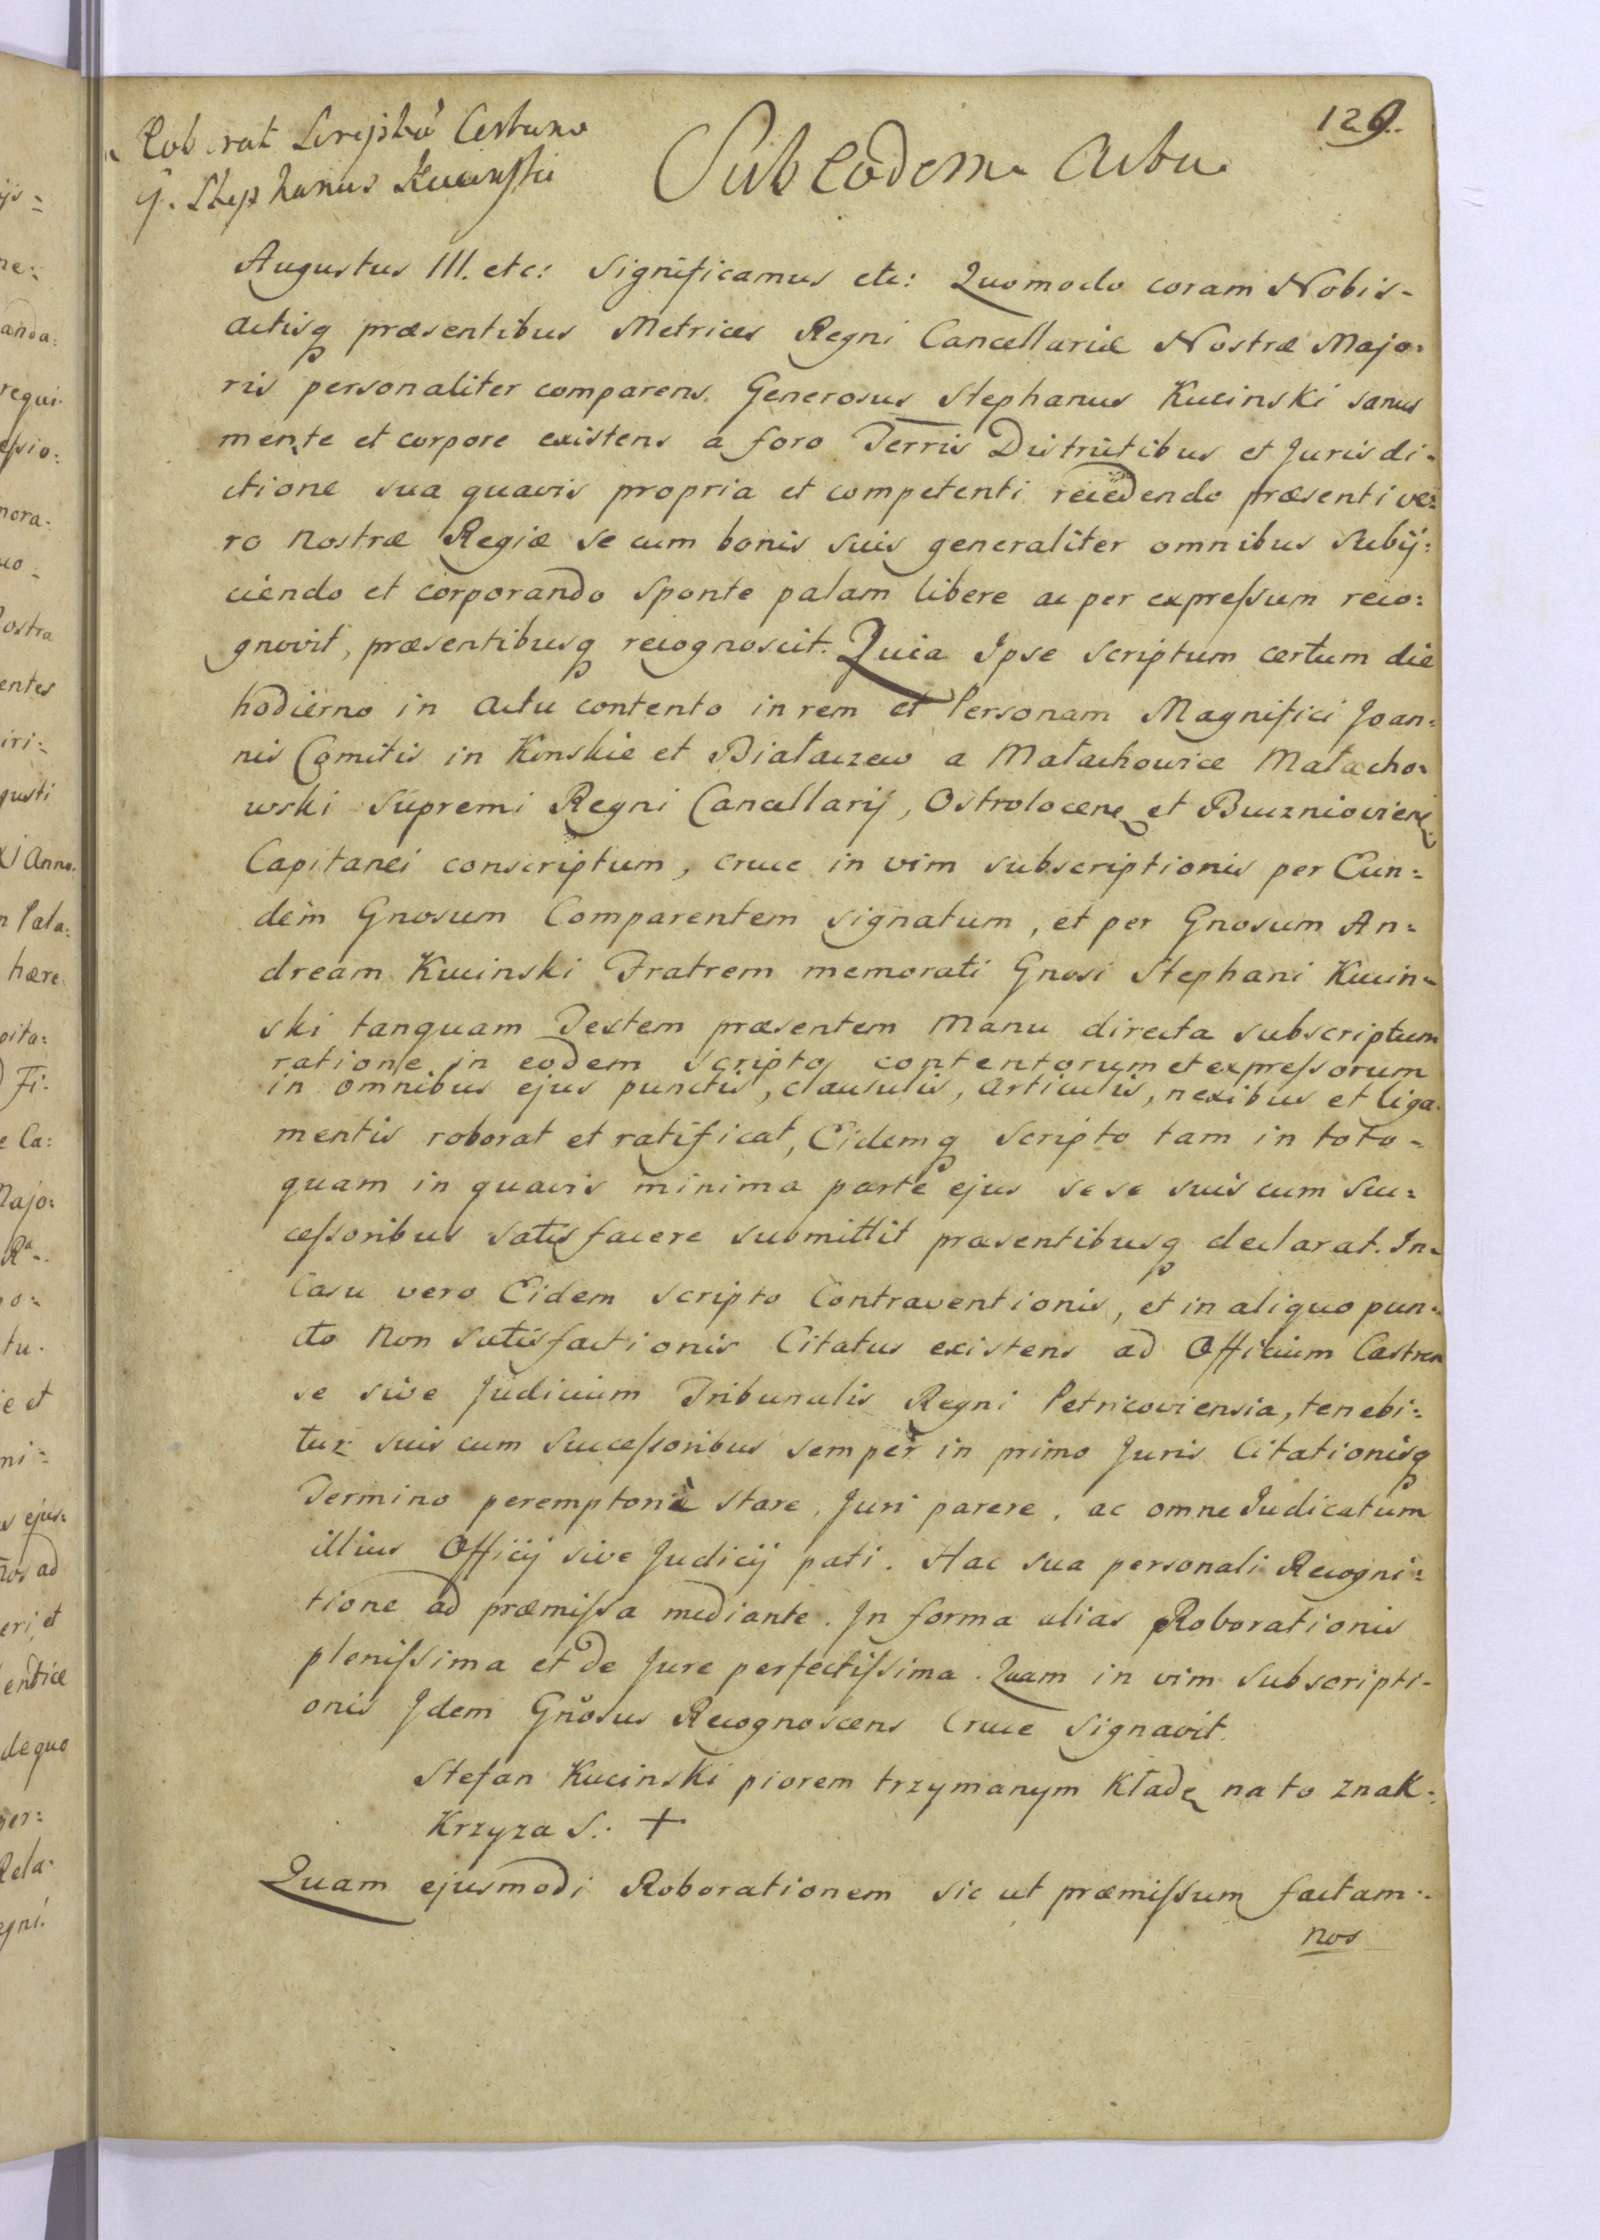 129.
Roborat Scriptu Certum
G. Stephanus Kucinski
Sub Eodem Actu
Augustus III. etc: Significamus etc: Quomodo coram Nobis-
actisq præsentibus Metrices Regni Cancellariæ Nostræ Majo:
ris personaliter comparens. Generosus Stephanus Kucinski sanus
mente et corpore existens a foro Terris Districtibus et Jurisdi:
ctione sua quavis propria et competenti recedendo præsenti ve:
ro nostræ Regiæ se cum bonis suis generaliter omnibus Subij:
ciendo et corporando sponte palam libere ac per expreſsum reco:
gnovit, præsentibusq recognoscit. Quia Ipse Scriptum certum die
hodierno in Actu contento in rem et Personam Magnifici Joan:
nis Comitis in Konskie et Białaczew a Małachowice Małacho:
wski Supremi Regni Cancellarij, Ostrolocenẹ et Bucznioviene
Capitanei conscriptum, cruce in vim subscriptionis per Eun:
dem Gnosum Comparentem signatum, et per Gnosum An:
dream Kucinski Fratrem memorati Gnosi Stephani Kucin:
ski tanquam Testem præsentem Manu directa subscriptum
ratione in eodem scripto contentorum et expreſsorum
in omnibus ejus punctis, clausulis, articulis, nexibus et liga:
mentis roborat et ratificat, Eidemq scripto tam in toto-
quam in quavis minima parte ejus sese suis cum Suc:
ceſsoribus satisfacere submittit præsentibusq declarat. In:
Casu vero Eidem scripto Contraventionis, et in aliquo pun:
cto Non Satisfactionis Citatus existens ad Officium Castren
se sive Judicium Tribunalis Regni Petricoviensia, tenebi:
tur suis cum Succeſsoribus semper in primo Juris Citationisq
Termino peremptorie stare, Juri parere, ac omne Judicatum
illius Officij sive Judicij pati. Hac sua personali Recogni:
tione ad præmiſsa mediante. In forma alias Roborationis
pleniſsima et de Jure perfectiſsima. Quam in vim Subscripti-
onis Idem Gnosus Recognoscens Cruce Signavit.
Stefan Kucinski piorem trzymanym Kładę na to znak:
Krzyza S.: +
Quam ejusmodi Roborationem sic ut præmiſsum factam:
nos